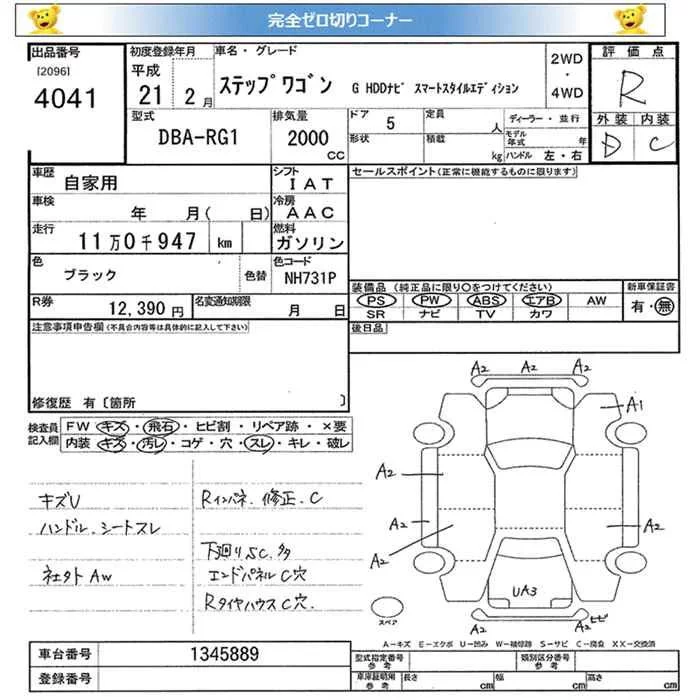 完全ゼロ切りコーナー
出品番号
[2096]
4041
初度登録年月
平成
21 2 月
車名・グレード
ステップワゴン G HDDナビ スマートスタイルエディション
2WD
・
4WD
評価点
R
外装 内装
D C
型式
DBA-RG1
排気量
2000
CC
ドア
5
形状
定員
人
積載
kg
ディーラー・並行
モデル年式 年
ハンドル 左・右
車歴
自家用
シフト
IAT
車検
年 月( 日)
冷房
AAC
走行
11万0千947 km
燃料
ガソリン
色
ブラック
色替
色コード
NH731P
R券
12,390円
名変通知期限
月 日
セールスポイント(正常に機能するものに限ります)
装備品 (純正品に限り〇をつけてください)
PS PW ABS エアB AW
SR ナビ TV カワ
新車保証書
有・無
後日品
注意事項申告欄(不具合内容等は具体的に記入して下さい)
修復歴 有〔箇所 〕
検査員
記入欄
FW キズ・飛石・ヒビ割・リペア跡・×要
内装 キズ・汚レ・コゲ・穴・スレ・キレ・破レ
キズU
ハンドル.シートスレ
社外AW
Rインパネ.修正.C
下廻りS.C.多
エンドパネルC穴
RタイヤハウスC穴.
A2 A2 A2
A1
A2
A2
A2
A2
UA3
A2 A2 ヒビ
スペア
A-キズ E-エクボ U-凹み W-補修跡 S-サビ C-腐食 XX-交換済
車台番号
1345889
登録番号
型式指定番号
参考
類別区分番号
参考
車庫証明用
参考
長さ cm
幅 cm
高さ cm